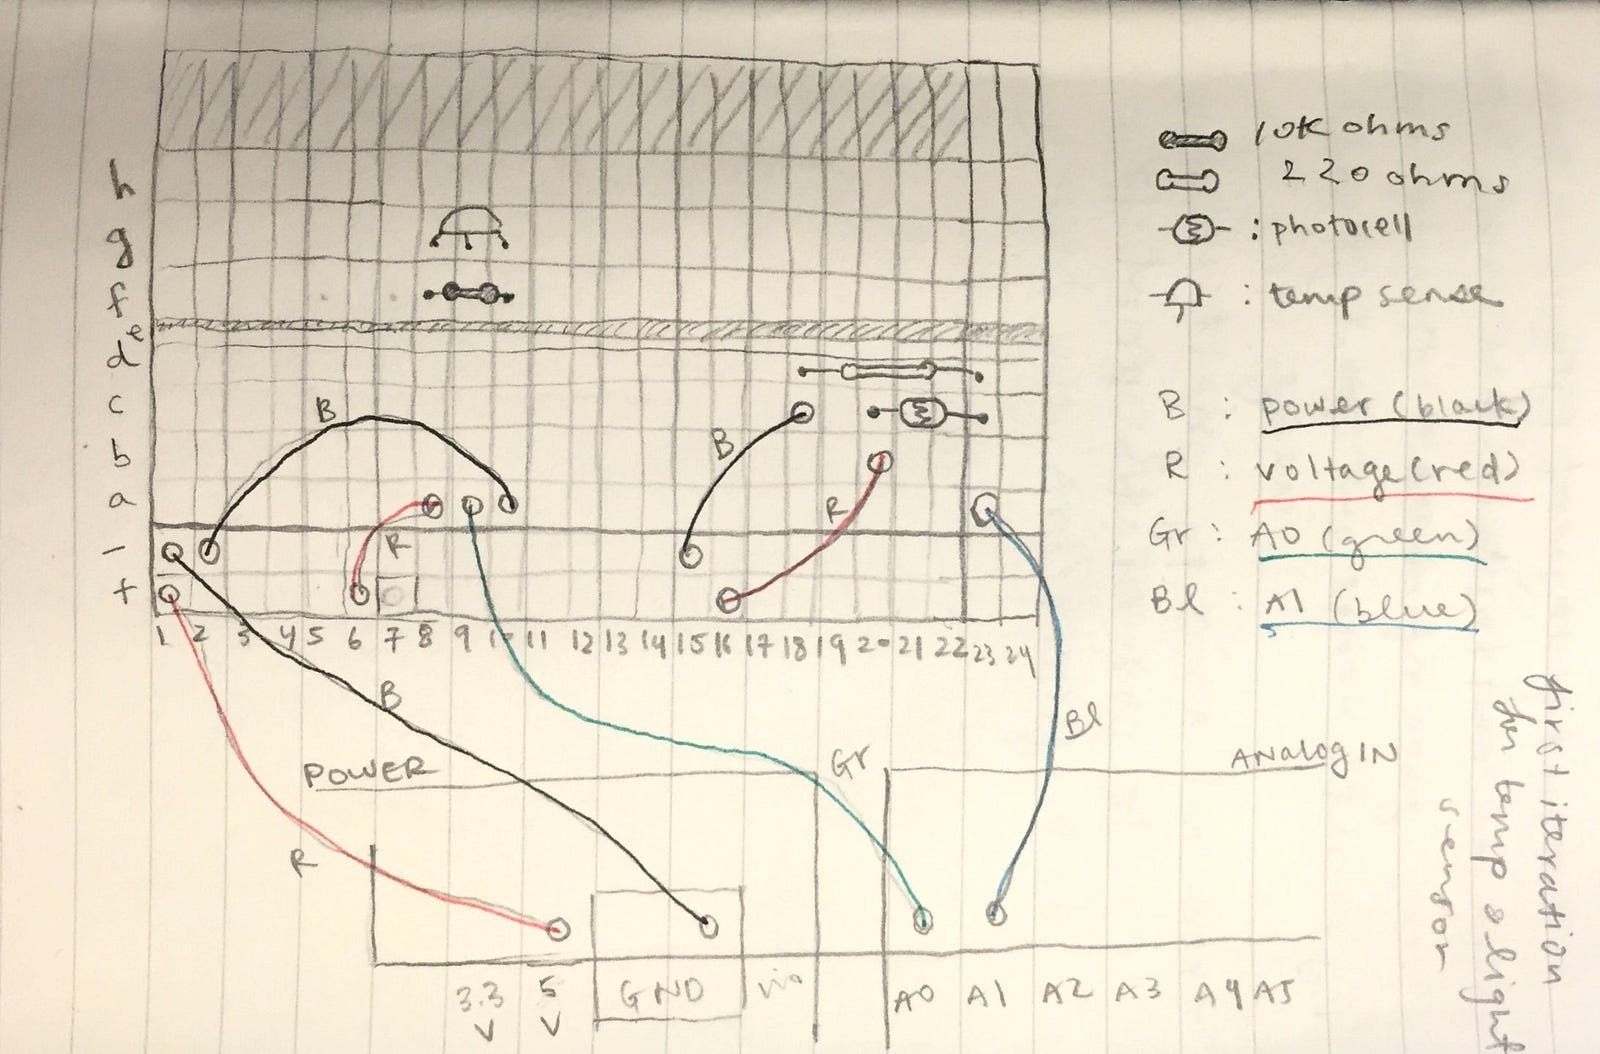 10K ohms
220 ohms
: photocell
: temp sense
h
g
f
e
d
c
b
a
-
+
B
B
R
R
B : power (black)
R : voltage (red)
Gr : A0 (green)
Bl : A1 (blue)
1 2 3 4 5 6 7 8 9 10 11 12 13 14 15 16 17 18 19 20 21 22 23 24
B
R
Gr
Bl
POWER
ANALOG IN
3.3 V
5 V
GND
A0 A1 A2 A3 A4 A5
first iteration
for temp & light
sensor